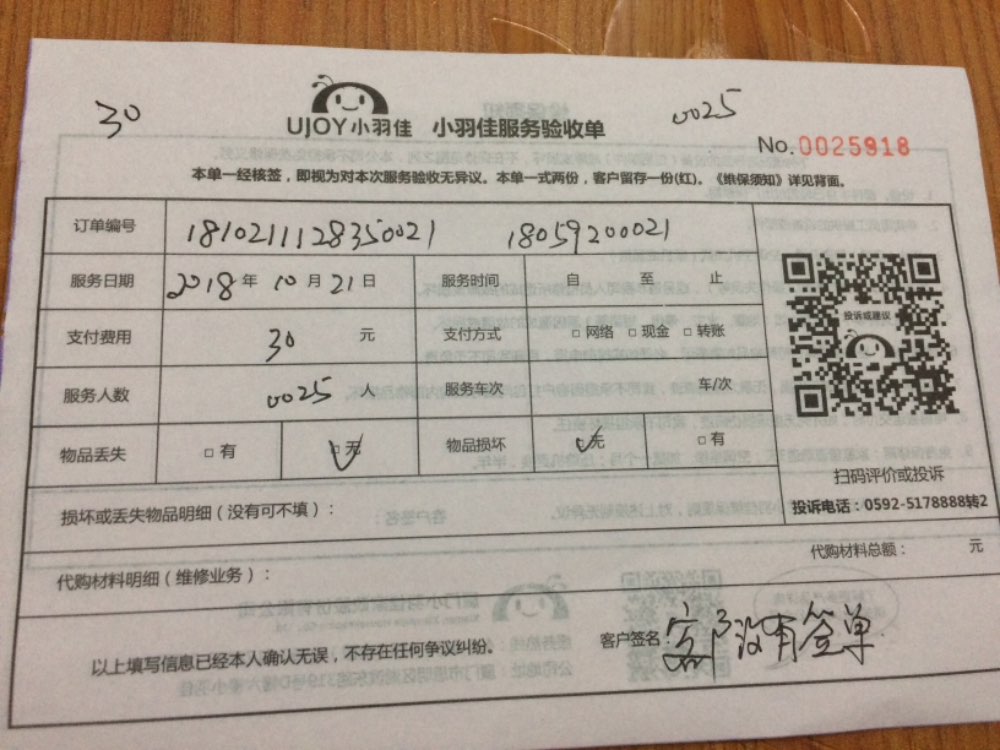 30
0025
UJOY小羽佳 小羽佳服务验收单
No.0025918
本单一经核签，即视为对本次服务验收无异议。本单一式两份，客户留存一份(红)。《维保须知》详见背面。
订单编号 1810211128350021 18059200021
服务日期 2018年10月21日 服务时间 自 至 止
支付费用 30 元 支付方式 □网络 □现金 □转账
服务人数 0025 服务车次 车/次
物品丢失 □有 □无 物品损坏 □无 □有
投诉或建议
扫码评价或投诉
投诉电话：0592-5178888转2
损坏或丢失物品明细（没有可不填）：
代购材料明细（维修业务）：
代购材料总额： 元
以上填写信息已经本人确认无误，不存在任何争议纠纷。
客户签名：客户没有签单